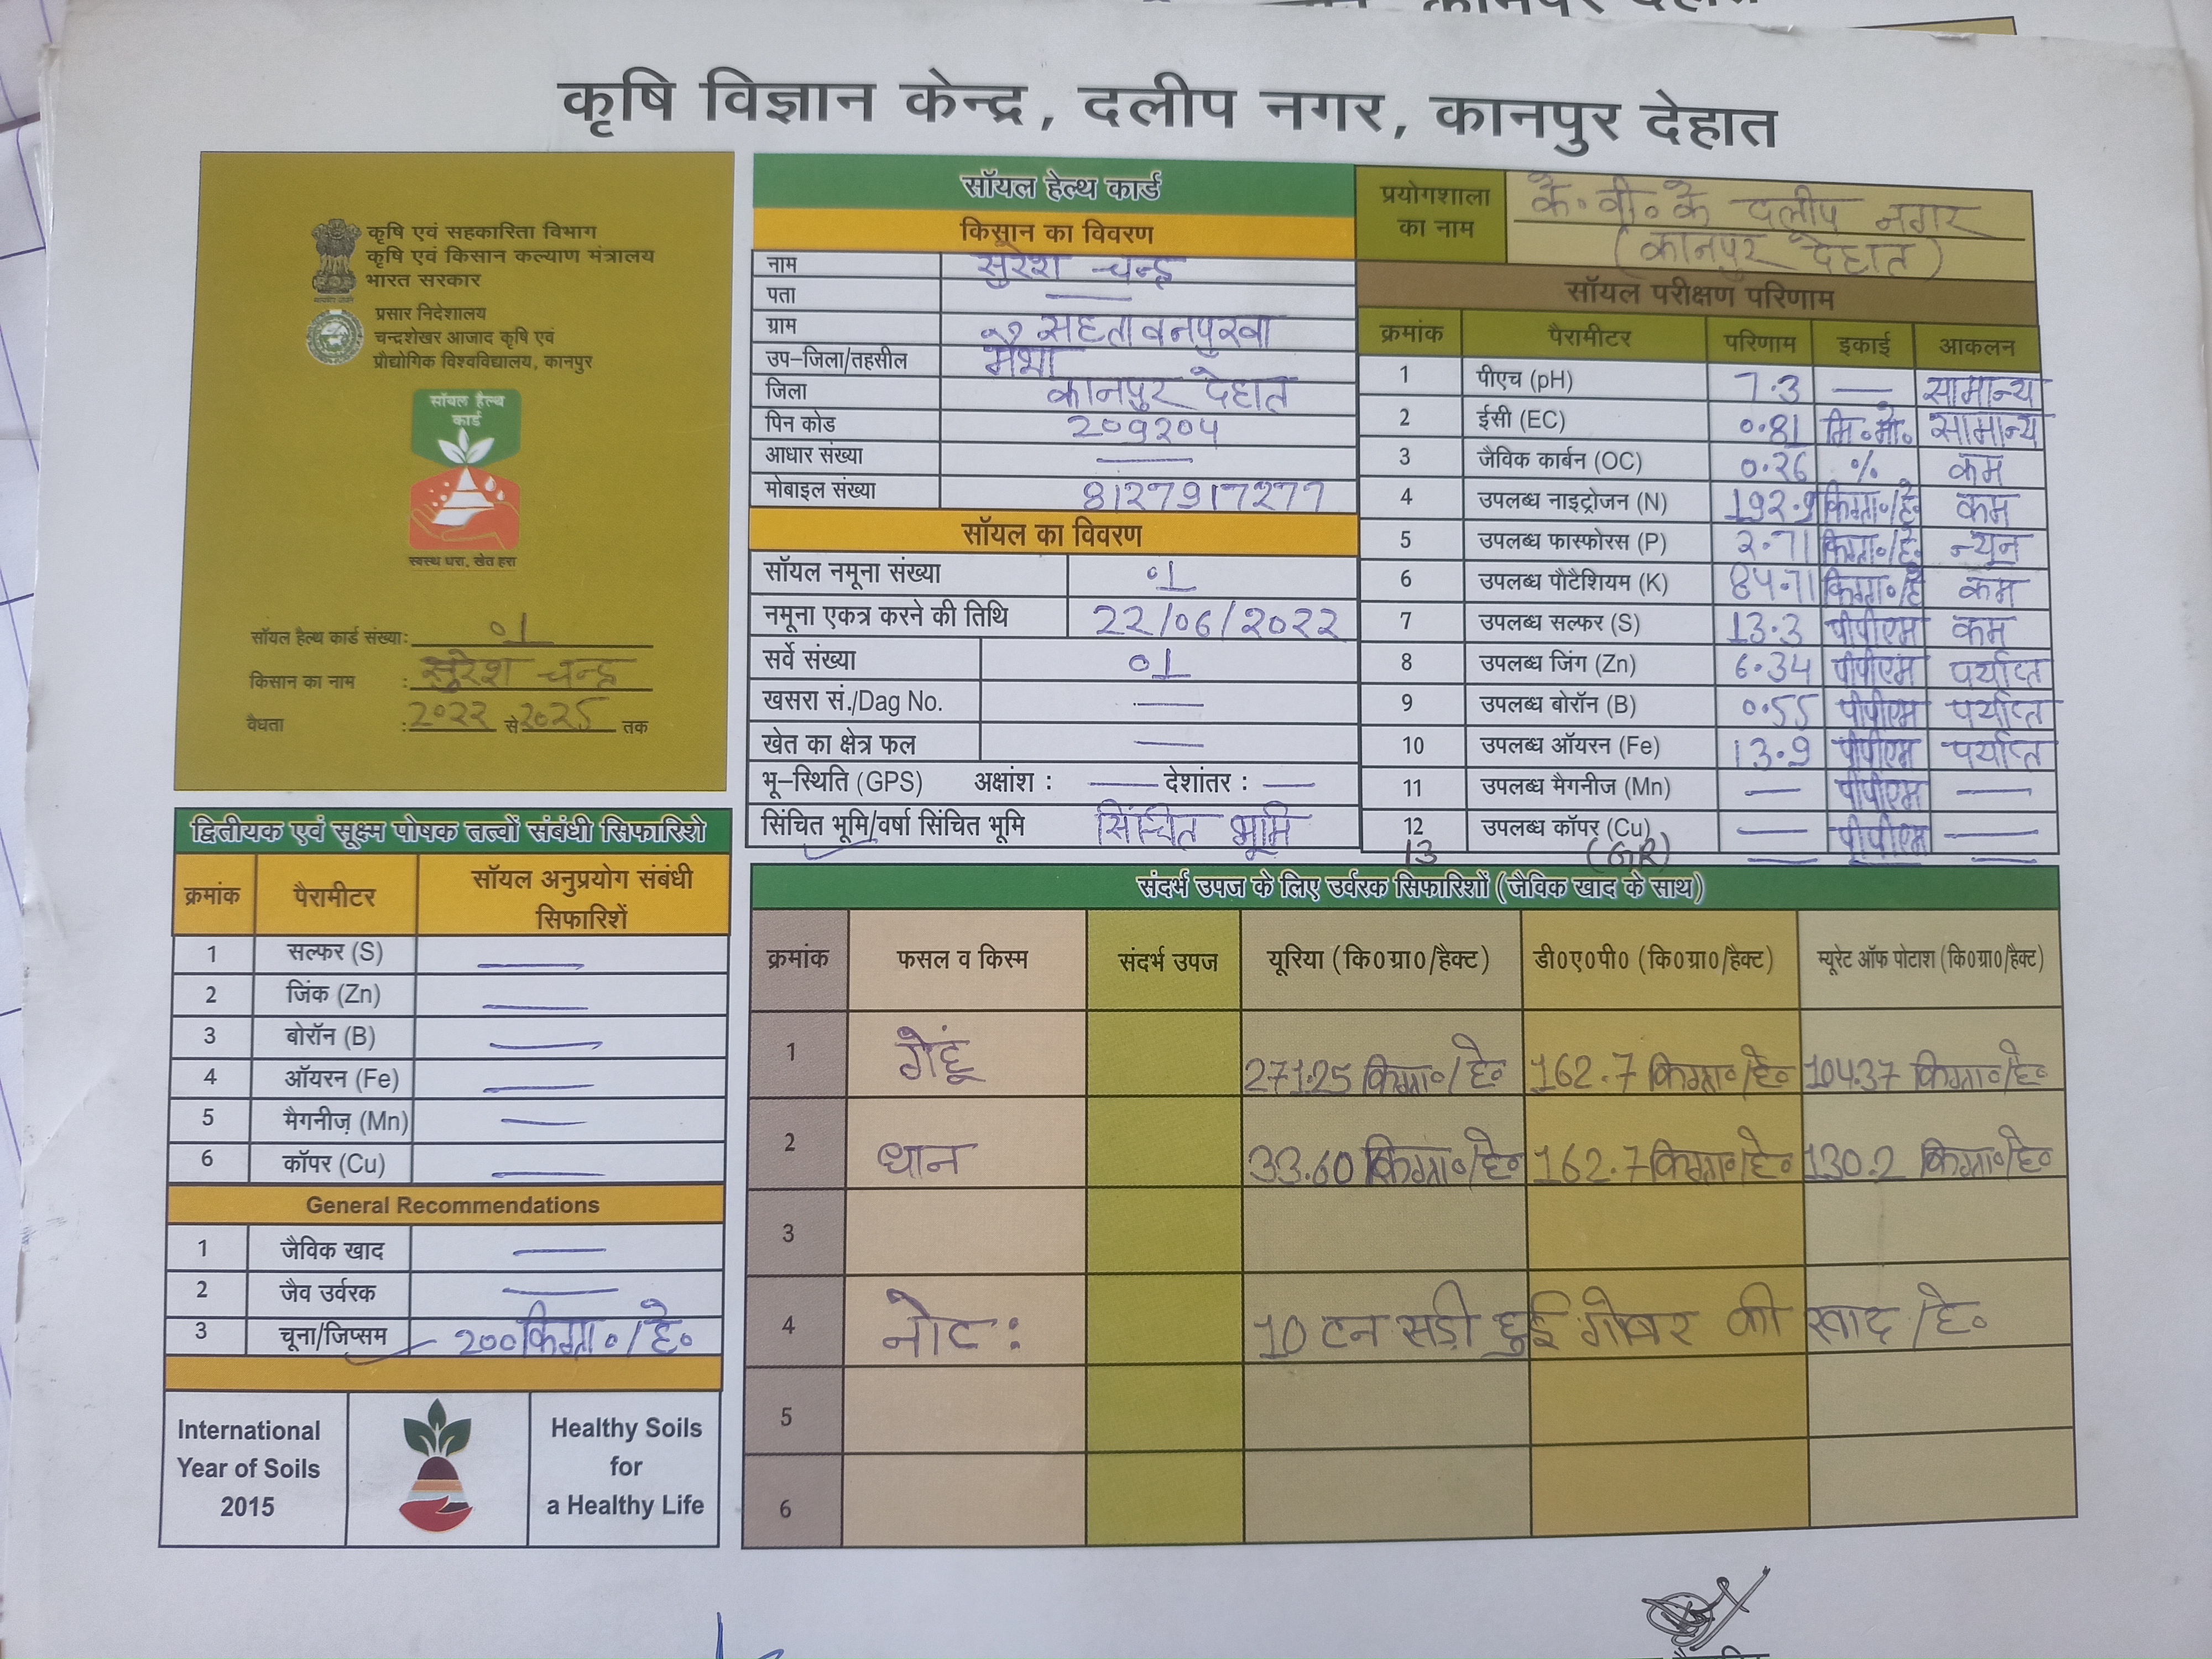 कृषि विज्ञान केन्द्र, दलीप नगर, कानपुर देहात
कृषि एवं सहकारिता विभाग
कृषि एवं किसान कल्याण मंत्रालय
भारत सरकार
प्रसार निदेशालय
चन्द्रशेखर आजाद कृषि एवं
प्रौद्योगिक विश्वविद्यालय, कानपुर
सॉयल हैल्थ
कार्ड
स्वस्थ धरा, खेत हरा
सॉयल हैल्थ कार्ड संख्या: ०1
किसान का नाम : सुरेश चन्द्र
वैधता : 2०२२ से 2०२5 तक
सॉयल हेल्थ कार्ड
किसान का विवरण
नाम सुरेश चन्द्र
पता —
ग्राम सहतावनपुरवा
उप-जिला/तहसील मैथा
जिला कानपुर देहात
पिन कोड २०9२०4
आधार संख्या —
मोबाइल संख्या 8127917277
सॉयल का विवरण
सॉयल नमूना संख्या ०1
नमूना एकत्र करने की तिथि 22/06/2022
सर्वे संख्या ०1
खसरा सं./Dag No. —
खेत का क्षेत्र फल —
भू-स्थिति (GPS) अक्षांश : — देशांतर : —
सिंचित भूमि/वर्षा सिंचित भूमि सिंचित भूमि
प्रयोगशाला का नाम के॰वी॰के दलीप नगर
(कानपुर देहात)
सॉयल परीक्षण परिणाम
क्रमांक पैरामीटर परिणाम इकाई आकलन
1 पीएच (pH) 7.3 — सामान्य
2 ईसी (EC) ०.81 मि॰मो॰ सामान्य
3 जैविक कार्बन (OC) ०.26 % कम
4 उपलब्ध नाइट्रोजन (N) 192.9 किग्रा०/हे० कम
5 उपलब्ध फास्फोरस (P) 2.71 किग्रा०/हे० न्यून
6 उपलब्ध पौटैशियम (K) 84.71 किग्रा०/हे कम
7 उपलब्ध सल्फर (S) 13.3 पीपीएम कम
8 उपलब्ध जिंग (Zn) 6.34 पीपीएम पर्याप्त
9 उपलब्ध बोरॉन (B) ०.55 पीपीएम पर्याप्त
10 उपलब्ध ऑयरन (Fe) 13.9 पीपीएम पर्याप्त
11 उपलब्ध मैगनीज (Mn) — पीपीएम —
12 उपलब्ध कॉपर (Cu) — पीपीएम —
13 (GR) — —
द्वितीयक एवं सूक्ष्म पोषक तत्वों संबंधी सिफारिशे
क्रमांक पैरामीटर सॉयल अनुप्रयोग संबंधी सिफारिशें
1 सल्फर (S) —
2 जिंक (Zn) —
3 बोरॉन (B) —
4 ऑयरन (Fe) —
5 मैगनीज़ (Mn) —
6 कॉपर (Cu) —
General Recommendations
1 जैविक खाद —
2 जैव उर्वरक —
3 चूना/जिप्सम – 200 किग्रा०/हे०
International
Year of Soils
2015
Healthy Soils
for
a Healthy Life
संदर्भ उपज के लिए उर्वरक सिफारिशों (जैविक खाद के साथ)
क्रमांक फसल व किस्म संदर्भ उपज यूरिया (कि0ग्रा0/हैक्ट) डी0ए0पी0 (कि0ग्रा0/हैक्ट) म्यूरेट ऑफ पोटाश (कि0ग्रा0/हैक्ट)
1 गेहूं 271.25 किग्रा०/हे० 162.7 किग्रा०/हे० 104.37 किग्रा०/हे०
2 धान 33.60 किग्रा०/हे० 162.7 किग्रा०/हे० 130.2 किग्रा०/हे०
3
4 नोट: 10 टन सड़ी हुई गोबर की खाद /हे०
5
6